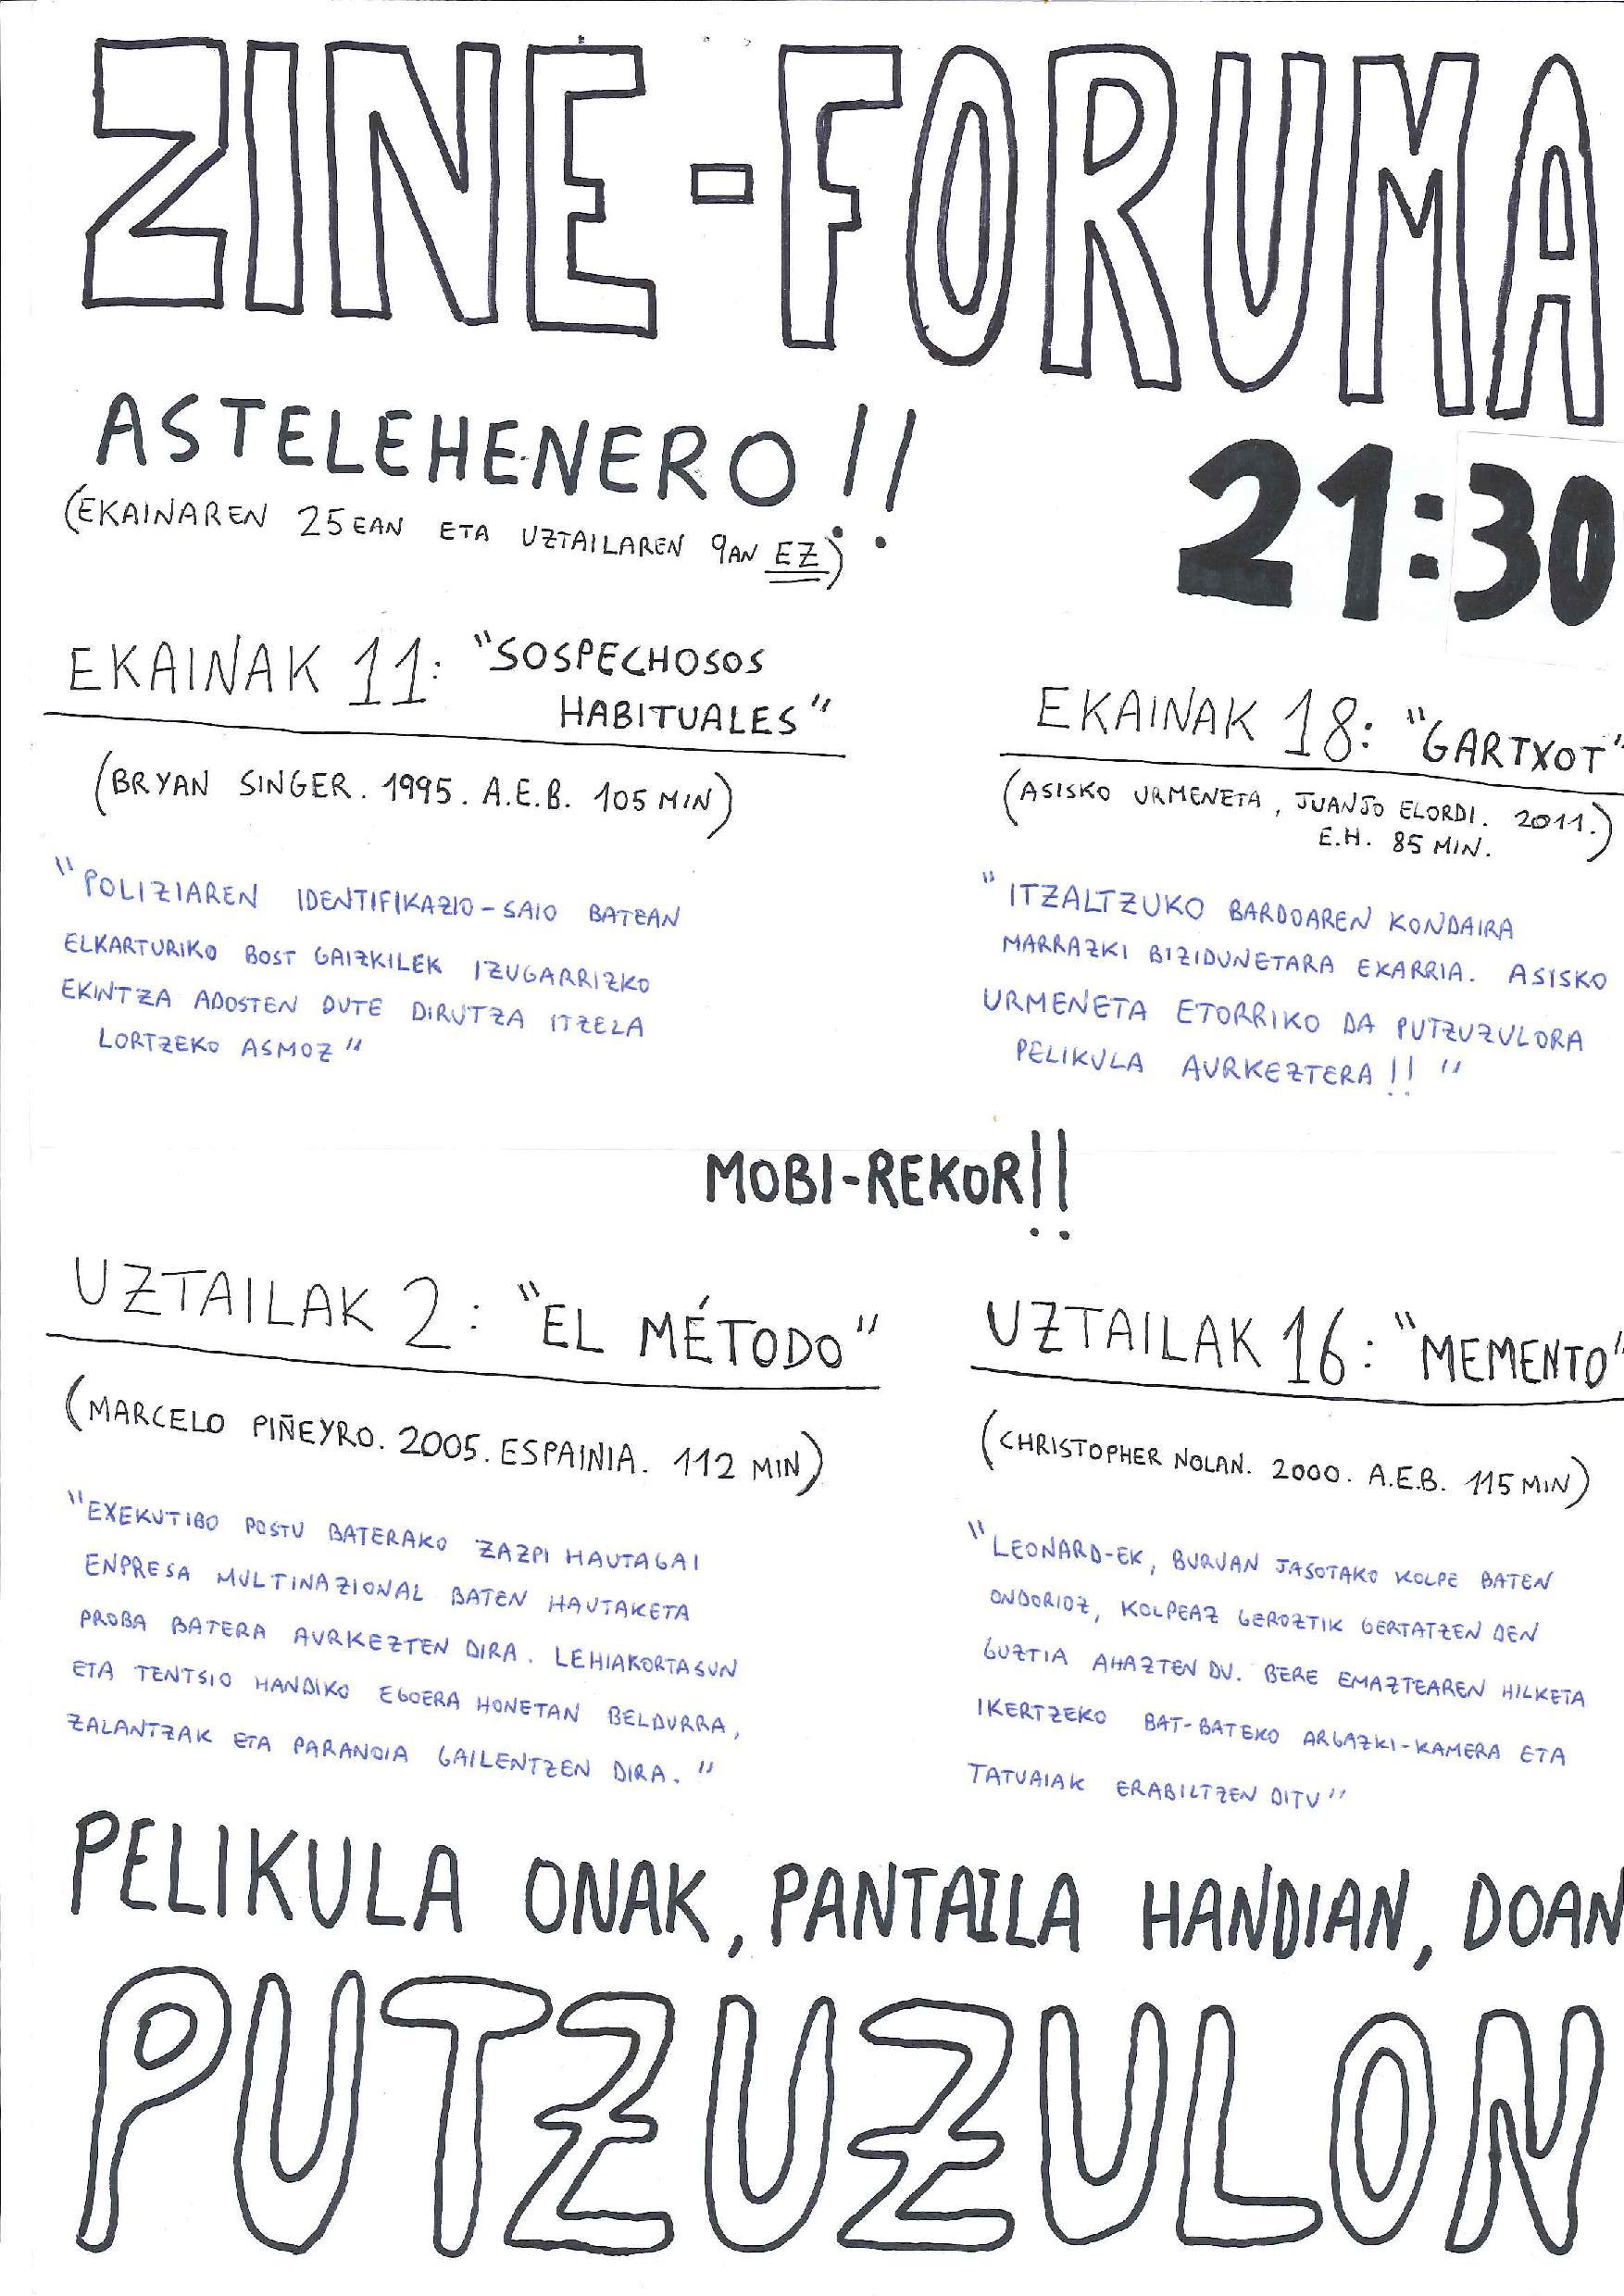 ZINE-FORUMA
ASTELEHENERO!!
(EKAINAREN 25EAN ETA UZTAILAREN 9AN EZ)
21:30
EKAINAK 11: "SOSPECHOSOS
HABITUALES"
(BRYAN SINGER. 1995. A.E.B. 105 MIN)
"POLIZIAREN IDENTIFIKAZIO-SAIO BATEAN
ELKARTURIKO BOST GAIZKILEK IZUGARRIZKO
EKINTZA ADOSTEN DUTE DIRUTZA ITZELA
LORTZEKO ASMOZ"
EKAINAK 18: "GARTXOT"
(ASISKO URMENETA, JUANJO ELORDI. 2011.
E.H. 85 MIN.)
"ITZALTZUKO BARDOAREN KONDAIRA
MARRAZKI BIZIDUNETARA EKARRIA. ASISKO
URMENETA ETORRIKO DA PUTZUZULORA
PELIKULA AURKEZTERA!!"
MOBI-REKOR!!
UZTAILAK 2: "EL MÉTODO"
(MARCELO PIÑEYRO. 2005. ESPAINIA. 112 MIN)
"EXEKUTIBO POSTU BATERAKO ZAZPI HAUTAGAI
ENPRESA MULTINAZIONAL BATEN HAUTAKETA
PROBA BATERA AURKEZTEN DIRA. LEHIAKORTASUN
ETA TENTSIO HANDIKO EGOERA HONETAN BELDURRA,
ZALANTZAK ETA PARANOIA GAILENTZEN DIRA."
UZTAILAK 16: "MEMENTO"
(CHRISTOPHER NOLAN. 2000. A.E.B. 115 MIN)
"LEONARD-EK, BURUAN JASOTAKO KOLPE BATEN
ONDORIOZ, KOLPEAZ GEROZTIK GERTATZEN DEN
GUZTIA AHAZTEN DU. BERE EMAZTEAREN HILKETA
IKERTZEKO BAT-BATEKO ARGAZKI-KAMERA ETA
TATUAIAK ERABILTZEN DITU"
PELIKULA ONAK, PANTAILA HANDIAN, DOAN
PUTZUZULON